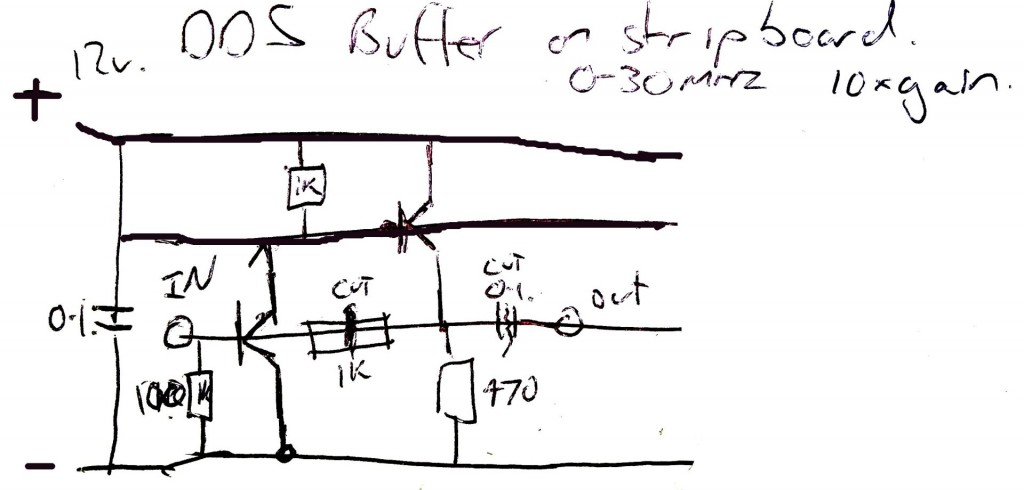 DDS Buffer on stripboard.
12v.
0-30MHz 10xgain.
+
1K
IN
CUT
CUT
0.1.
out
0.1.
1K
1K
470
-